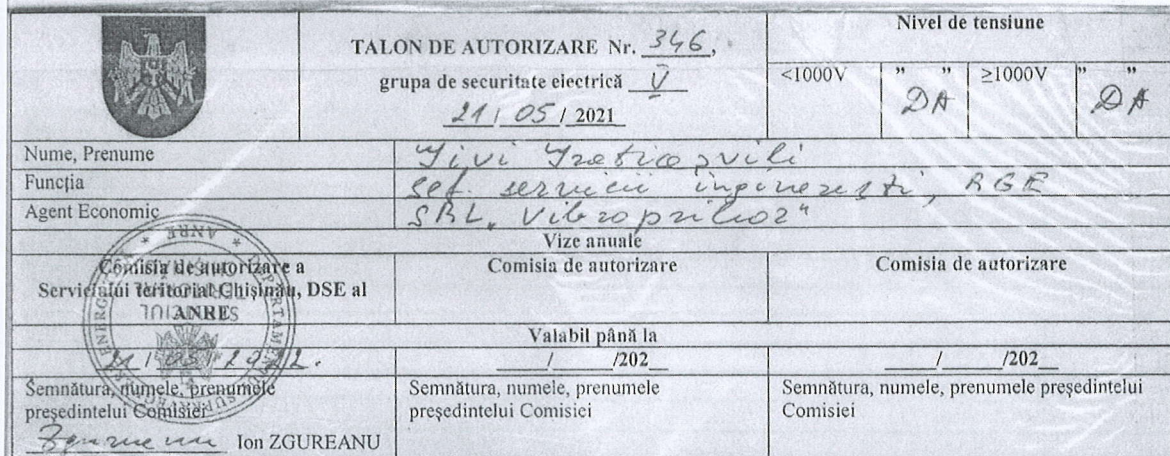 TALON DE AUTORIZARE Nr. 346,
grupa de securitate electrică V
21 / 05 / 2021
Nivel de tensiune
<1000V " DA " ≥1000V " DA "
Nume, Prenume Jivi
Funcția șef. servicii inginerești, RGE
Agent Economic SRL „Vibropribor"
Vize anuale
Comisia de autorizare a
Serviciului teritorial Chișinău, DSE al
ANRE
Comisia de autorizare
Comisia de autorizare
Valabil până la
21 / 05 / 2022.
/ /202
/ /202
Semnătura, numele, prenumele
președintelui Comisiei
Ion ZGUREANU
Semnătura, numele, prenumele
președintelui Comisiei
Semnătura, numele, prenumele președintelui
Comisiei
ANRE